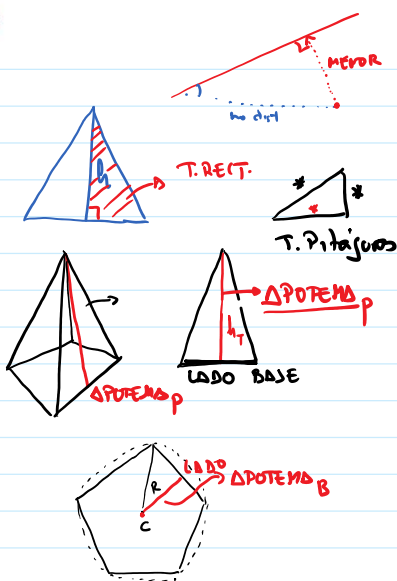 MENOR
no dist
h
T. RECT.
T. Pitágoras
APOTEMA P
h T
LADO BASE
APOTEMA P
LADO
R
APOTEMA B
C